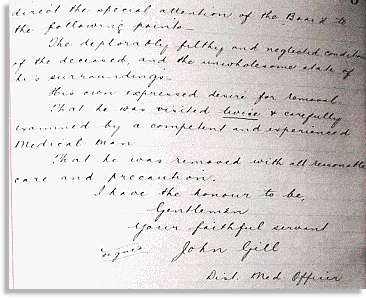 direct the special attention of the Board to
the following points_
The deplorably filthy and neglected condition
of the deceased, and the unwholesome state of
his surroundings_
His own expressed desire for removal_
That he was visited twice & carefully
examined by a competent and experienced
Medical Man
That he was removed with all reasonable
care and precaution.
I have the honour to be,
Gentlemen
Your faithful servant
signed John Gill
Dist. Med Officer